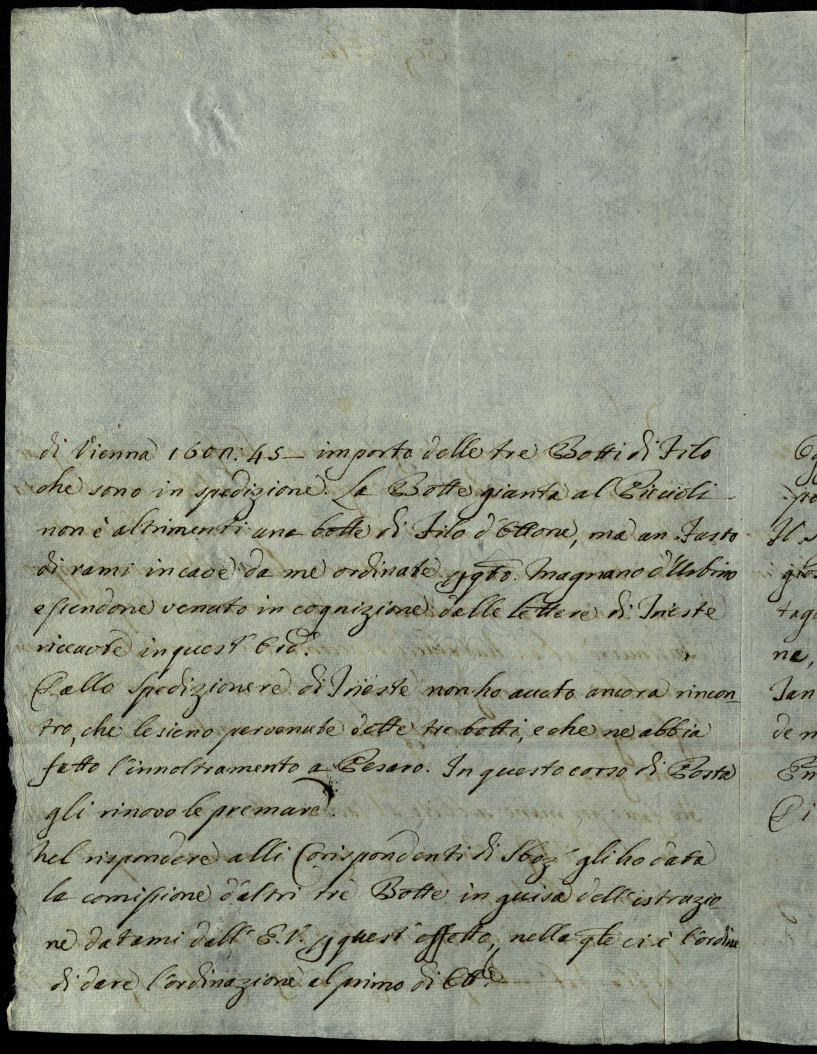 di Vienna 1600: 45 — importo delle tre Botti di Filo
che sono in spedizione. La Botte gianta al Piccioli
non è altrimenti una botte di Filo d'Ottone, ma un Fusto
di rami in cave da me ordinate Magnano d'Urbino
essendone venuto in cognizione dalle lettere di Trieste
riceute in quest' Ord.
Dallo Spedizionere di Trieste non ho auuto ancora rincon-
tro, che le sieno pervenute dette tre botti, e che ne abbia
fatto l'innoltramento a Pesaro. In questo corso di Posta
gli rinovo le premure.
Nel rispondere alli Corispondenti di gli ho data
la comissione d'altri tre Botte in guisa dell'istruzio
ne datami dall' E.V. quest' effetto, nella qle ci è l'ordine
di dare l'ordinazione al primo di Otte
po
Il
gios
tag
ne,
Tan
de
En
Di